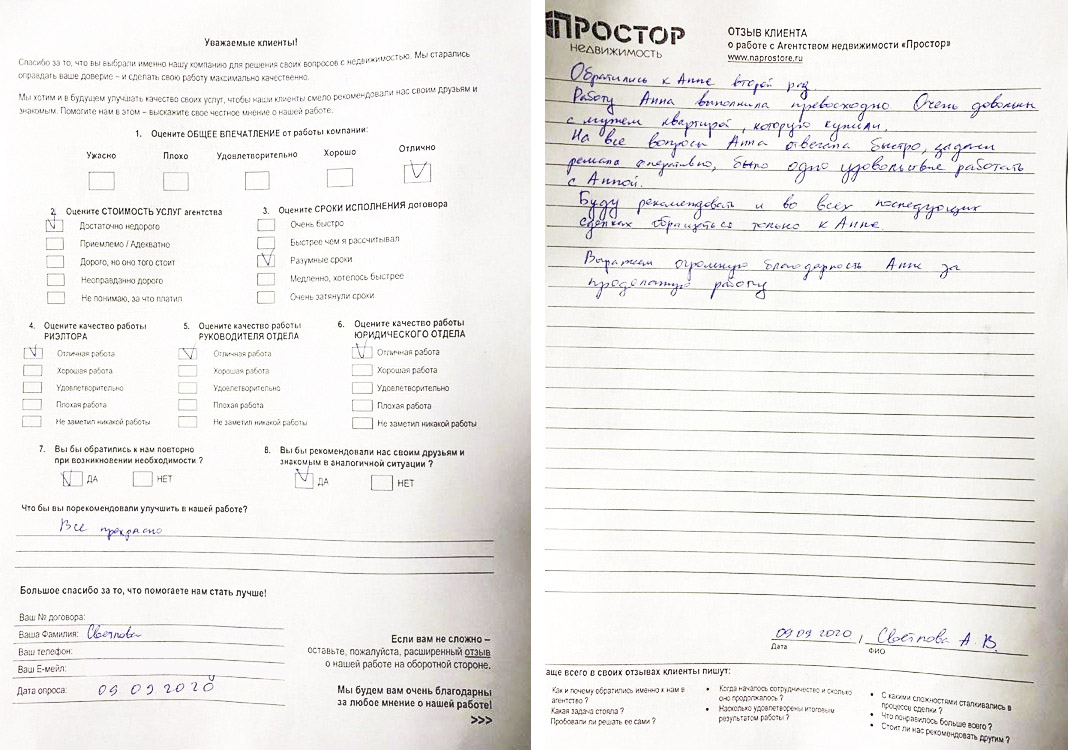 Уважаемые клиенты!
Спасибо за то, что вы выбрали именно нашу компанию для решения своих вопросов с недвижимостью. Мы старались
оправдать ваше доверие – и сделать свою работу максимально качественно.
Мы хотим и в будущем улучшать качество своих услуг, чтобы наши клиенты смело рекомендовали нас своим друзьям и
знакомым. Помогите нам в этом – выскажите свое честное мнение о нашей работе.
1. Оцените ОБЩЕЕ ВПЕЧАТЛЕНИЕ от работы компании:
Ужасно Плохо Удовлетворительно Хорошо Отлично
2. Оцените СТОИМОСТЬ УСЛУГ агентства
Достаточно недорого
Приемлемо / Адекватно
Дорого, но оно того стоит
Неоправданно дорого
Не понимаю, за что платил
3. Оцените СРОКИ ИСПОЛНЕНИЯ договора
Очень быстро
Быстрее чем я рассчитывал
Разумные сроки
Медленно, хотелось быстрее
Очень затянули сроки
4. Оцените качество работы
РИЭЛТОРА
Отличная работа
Хорошая работа
Удовлетворительно
Плохая работа
Не заметил никакой работы
5. Оцените качество работы
РУКОВОДИТЕЛЯ ОТДЕЛА
Отличная работа
Хорошая работа
Удовлетворительно
Плохая работа
Не заметил никакой работы
6. Оцените качество работы
ЮРИДИЧЕСКОГО ОТДЕЛА
Отличная работа
Хорошая работа
Удовлетворительно
Плохая работа
Не заметил никакой работы
7. Вы бы обратились к нам повторно
при возникновении необходимости ?
ДА НЕТ
8. Вы бы рекомендовали нас своим друзьям и
знакомым в аналогичной ситуации ?
ДА НЕТ
Что бы вы порекомендовали улучшить в нашей работе?
Все прекрасно
Большое спасибо за то, что помогаете нам стать лучше!
Ваш № договора:
Ваша Фамилия: Светлова
Ваш телефон:
Ваш Е-мейл:
Дата опроса: 09 09 2020
Если вам не сложно –
оставьте, пожалуйста, расширенный отзыв
о нашей работе на оборотной стороне.
Мы будем вам очень благодарны
за любое мнение о нашей работе!
>>>
ПРОСТОР
недвижимость
ОТЗЫВ КЛИЕНТА
о работе с Агентством недвижимости «Простор»
www.naprostore.ru
Обратились к Анне второй раз.
Работу Анна выполнила превосходно Очень довольны
с мужем квартирой, которую купили.
На все вопросы Анна отвечала быстро, задачи
решала оперативно, было одно удовольствие работать
с Анной.
Буду рекомендовать и во всех последующих
сделках обращаться только к Анне.
Выражаем огромную благодарность Анне за
проделанную работу
09 09 2020 / Светлова А. В.
Дата ФИО
аще всего в своих отзывах клиенты пишут:
Как и почему обратились именно к нам в
агентство ?
Какая задача стояла ?
Пробовали ли решать ее сами ?
• Когда началось сотрудничество и сколько
оно продолжалось ?
• Насколько удовлетворены итоговым
результатом работы ?
• С какими сложностями сталкивались в
процессе сделки ?
• Что понравилось больше всего ?
• Стоит ли нас рекомендовать другим ?